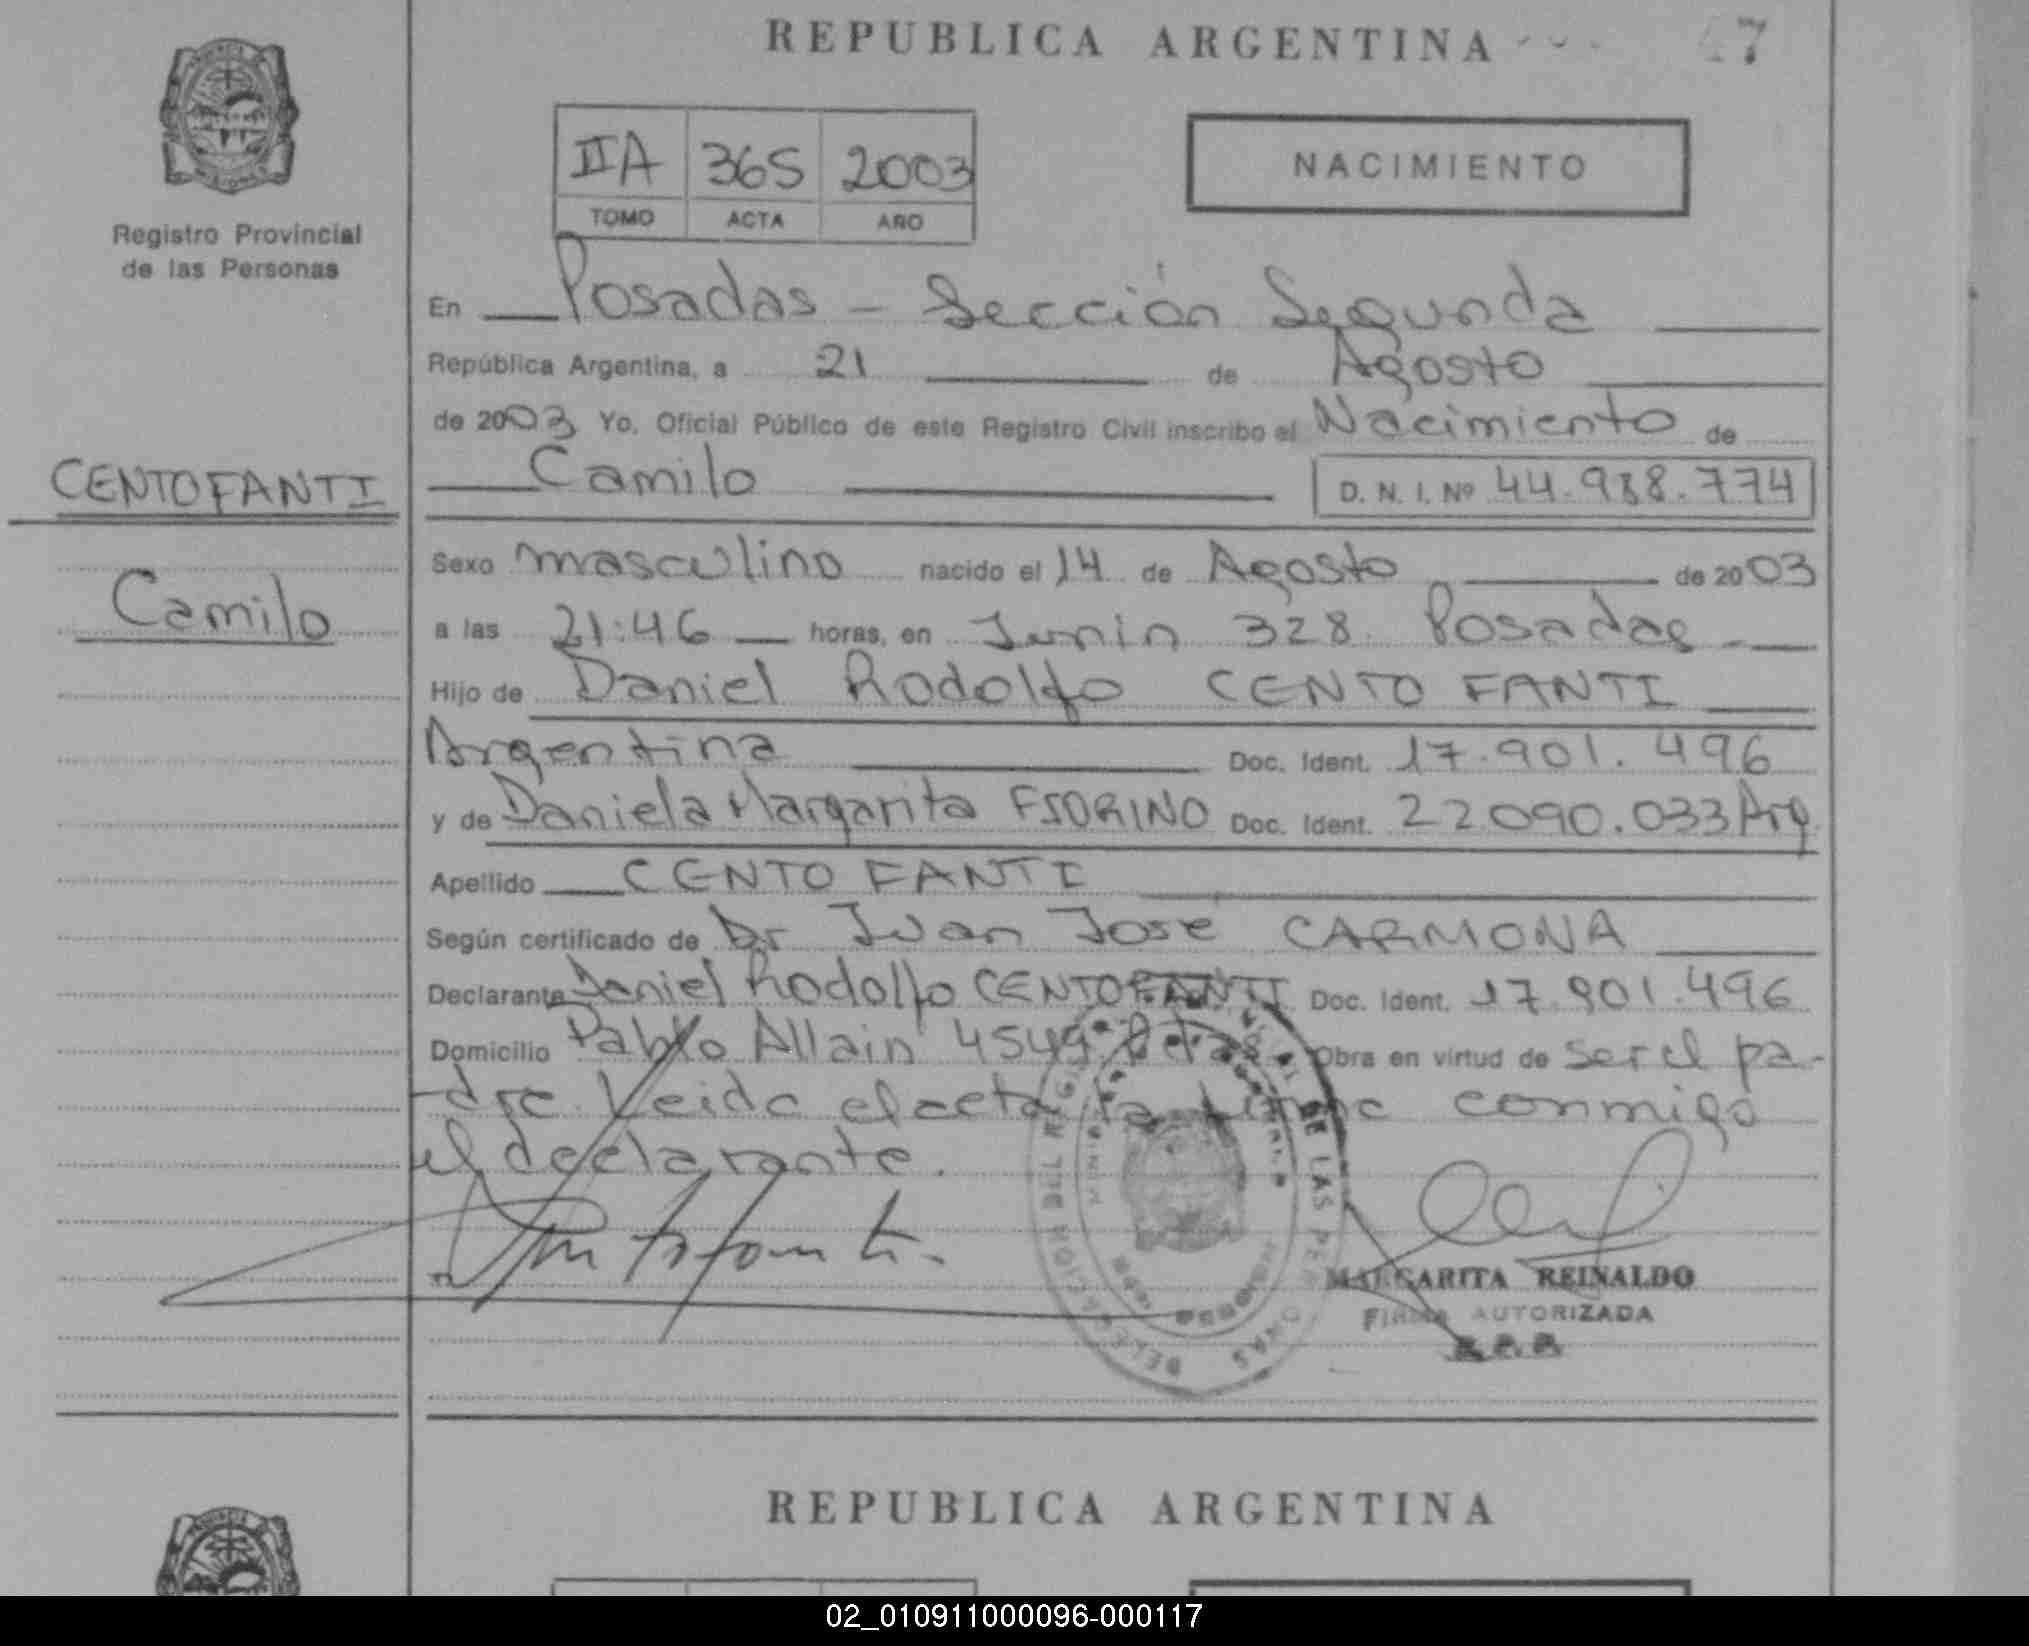 REPUBLICA ARGENTINA
47
Registro Provincial
de las Personas
IIA 365 2003
TOMO ACTA AÑO
NACIMIENTO
En Posadas - Sección Segunda
República Argentina, a 21 de Agosto
de 2003 Yo, Oficial Público de este Registro Civil inscribo el Nacimiento de
CENTOFANTI
Camilo
Camilo D. N. I. Nº 44.988.774
Sexo masculino nacido el 14 de Agosto de 2003
a las 21:46 horas, en Junin 328 Posadas
Hijo de Daniel Rodolfo CENTO FANTI
Argentina Doc. Ident. 17.901.496
y de Daniela Margarita FIORINO Doc. Ident. 22.090.033 Arg.
Apellido CENTO FANTI
Según certificado de Dr Juan José CARMONA
Declarante Daniel Rodolfo CENTOFANTI Doc. Ident. 17.901.496
Domicilio Pablo Allain 4549 Pdas. Obra en virtud de ser el pa-
-dre. Leida el acta la firma conmigo
el declarante.
MARGARITA REINALDO
FIRMA AUTORIZADA
REPUBLICA ARGENTINA
02_010911000096-000117